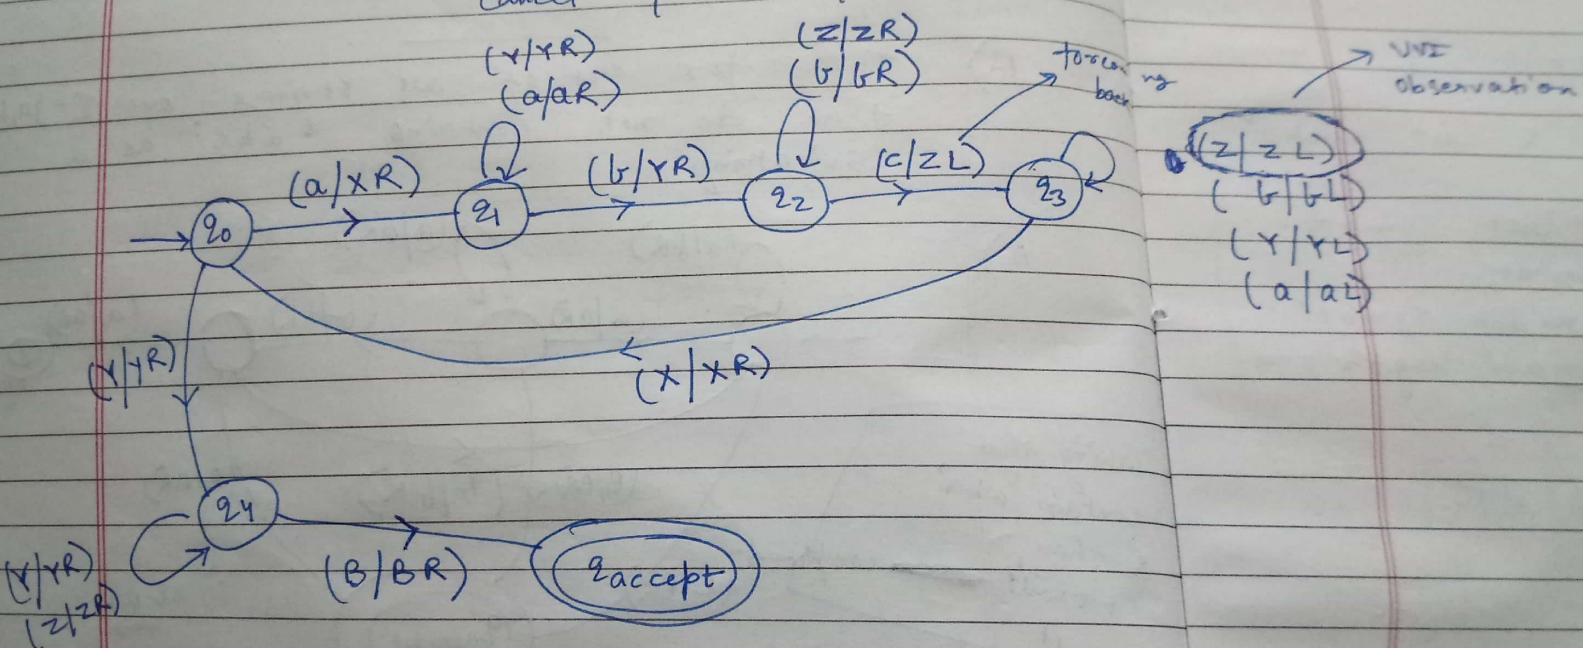 (Y/YR)
(a/aR)
(Z/ZR)
(b/bR)
back
VVI
observation
(a/XR)
(b/YR)
(c/ZL)
(Z/ZL)
(b/bL)
(Y/YL)
(a/aL)
q0
q1
q2
q3
(Y/YR)
(X/XR)
q4
(Y/YR)
(Z/ZR)
(B/BR)
qaccept